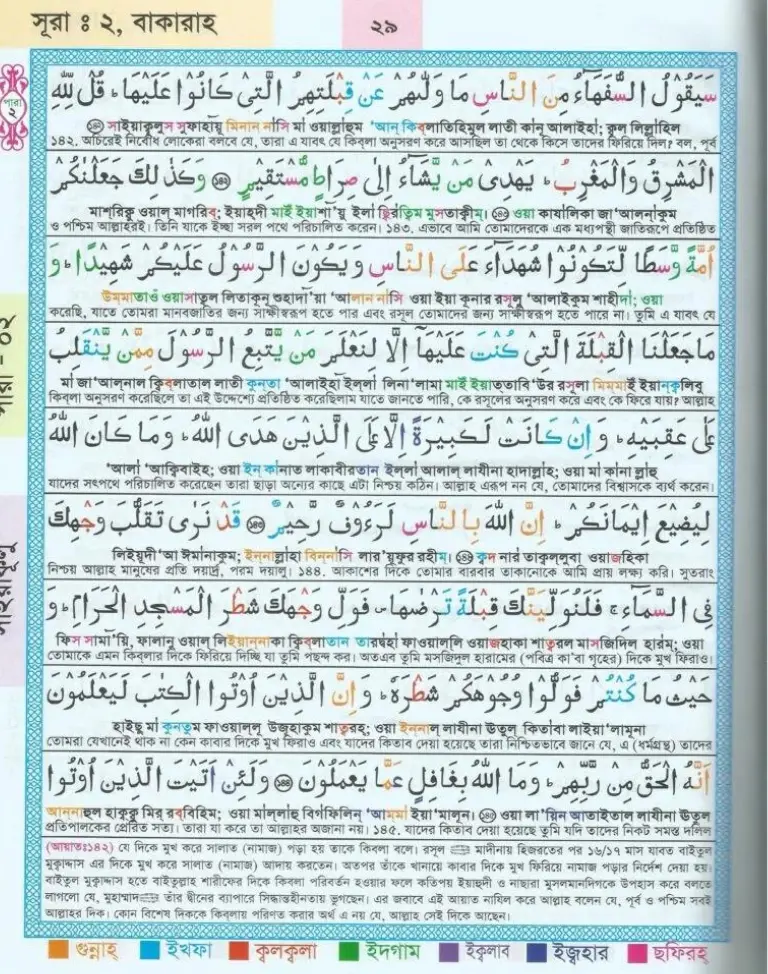 সূরা ঃ ২, বাকারাহ
২৯
পারা
২
سَيَقُوْلُ السُّفَهَآءُ مِنَ النَّاسِ مَا وَلّٰىهُمْ عَنْ قِبْلَتِهِمُ الَّتِيْ كَانُوْا عَلَيْهَا ؕ قُلْ لِّلّٰهِ
১৪২ সাইয়াকূলুস সুফাহায়ু মিনান না-সি মা ওয়াল্লাহুম 'আন্ কিব্লাতিহিমুল লাতী কানূ আলাইহা; কুল লিল্লাহিল
১৪২. অচিরেই নির্বোধ লোকেরা বলবে যে, তারা এ যাবৎ যে কিব্লা অনুসরণ করে আসছিল তা থেকে কিসে তাদের ফিরিয়ে দিল? বল, পূর্ব
الْمَشْرِقُ وَالْمَغْرِبُ ؕ يَهْدِيْ مَنْ يَّشَآءُ اِلٰى صِرَاطٍ مُّسْتَقِيْمٍ ۝ وَكَذٰلِكَ جَعَلْنٰكُمْ
মাশ্রিকু ওয়াল্ মাগরিব্; ইয়াহ্দী মাইঁ ইয়াশা'য়ু ইলা ছিরাত্বিম্ মুসতাকীম্। ১৪৩ ওয়া কাযালিকা জা'আলনাকুম
ও পশ্চিম আল্লাহরই। তিনি যাকে ইচ্ছা সরল পথে পরিচালিত করেন। ১৪৩. এভাবে আমি তোমাদেরকে এক মধ্যপন্থী জাতিরূপে প্রতিষ্ঠিত
اُمَّةً وَّسَطًا لِّتَكُوْنُوْا شُهَدَآءَ عَلَى النَّاسِ وَيَكُوْنَ الرَّسُوْلُ عَلَيْكُمْ شَهِيْدًا ؕ وَ
উম্মাতাওঁ ওয়াসাত্বল লিতাকূনূ শুহাদা'য়া 'আলান না-সি ওয়া ইয়া কূনার রসূলু 'আলাইকুম শাহীদা; ওয়া
করেছি, যাতে তোমরা মানবজাতির জন্য সাক্ষীস্বরূপ হতে পার এবং রসূল তোমাদের জন্য সাক্ষীস্বরূপ হতে পারে না। তুমি এ যাবৎ যে
مَا جَعَلْنَا الْقِبْلَةَ الَّتِيْ كُنْتَ عَلَيْهَآ اِلَّا لِنَعْلَمَ مَنْ يَّتَّبِعُ الرَّسُوْلَ مِمَّنْ يَّنْقَلِبُ
মা জা'আল্নাল কিব্লাতাল লাতী কুন্তা 'আলাইহা ইল্লা লিনা'লামা মাইঁ ইয়াত্তাবি'উর রসূলা মিম্মাইঁ ইয়ান্ক্বলিবু
কিব্লা অনুসরণ করেছিলে তা এই উদ্দেশ্যে প্রতিষ্ঠিত করেছিলাম যাতে জানতে পারি, কে রসূলের অনুসরণ করে এবং কে ফিরে যায়? আল্লাহ
عَلٰى عَقِبَيْهِ ؕ وَاِنْ كَانَتْ لَكَبِيْرَةً اِلَّا عَلَى الَّذِيْنَ هَدَى اللّٰهُ ؕ وَمَا كَانَ اللّٰهُ
'আলা 'আকিবাইহ; ওয়া ইন্ কানাত লাকাবীরতান ইল্লা আলাল্ লাযীনা হাদাল্লাহ; ওয়া মা কানা ল্লাহু
যাদের সৎপথে পরিচালিত করেছেন তারা ছাড়া অন্যের কাছে এটা নিশ্চয় কঠিন। আল্লাহ এরূপ নন যে, তোমাদের বিশ্বাসকে ব্যর্থ করেন।
لِيُضِيْعَ اِيْمَانَكُمْ ؕ اِنَّ اللّٰهَ بِالنَّاسِ لَرَءُوْفٌ رَّحِيْمٌ ۝ قَدْ نَرٰى تَقَلُّبَ وَجْهِكَ
লিইয়ূদী'আ ঈমানাকুম; ইন্নাল্লাহা বিন্নাসি লার'য়ূফুর রহীম্। ১৪৪ ক্বদ নার তাকল্লুবা ওয়াজহিকা
নিশ্চয় আল্লাহ মানুষের প্রতি দয়ার্দ্র, পরম দয়ালু। ১৪৪. আকাশের দিকে তোমার বারবার তাকানোকে আমি প্রায় লক্ষ্য করি। সুতরাং
فِي السَّمَآءِ ۚ فَلَنُوَلِّيَنَّكَ قِبْلَةً تَرْضٰىهَا ؕ فَوَلِّ وَجْهَكَ شَطْرَ الْمَسْجِدِ الْحَرَامِ ؕ وَ
ফিস সামা'য়ি, ফালানু ওয়াল্ লিইয়ান্নাকা কিব্লাতান তারদ্বহা ফাওয়াল্লি ওয়াজহাকা শাত্বরল মাসজিদিল হারাম; ওয়া
তোমাকে এমন কিব্লার দিকে ফিরিয়ে দিচ্ছি যা তুমি পছন্দ কর। অতএব তুমি মসজিদুল হারামের (পবিত্র কা'বা গৃহের) দিকে মুখ ফিরাও।
حَيْثُ مَا كُنْتُمْ فَوَلُّوْا وُجُوْهَكُمْ شَطْرَهٗ ؕ وَاِنَّ الَّذِيْنَ اُوْتُوا الْكِتٰبَ لَيَعْلَمُوْنَ
হাইছু মা কুন্তুম ফাওয়াল্লূ উজূহাকুম শাত্বরহ; ওয়া ইন্নাল্ লাযীনা ঊতুল্ কিতাবা লাইয়া'লামূনা
তোমরা যেখানেই থাক না কেন কাবার দিকে মুখ ফিরাও এবং যাদের কিতাব দেয়া হয়েছে তারা নিশ্চিতভাবে জানে যে, এ (ধর্মগ্রন্থ) তাদের
اَنَّهُ الْحَقُّ مِنْ رَّبِّهِمْ ؕ وَمَا اللّٰهُ بِغَافِلٍ عَمَّا يَعْمَلُوْنَ ۝ وَلَئِنْ اَتَيْتَ الَّذِيْنَ اُوْتُوا
আন্নাহুল হাক্কু মির্ রব্বিহিম; ওয়া মাল্লাহু বিগফিলিন্ 'আম্মা ইয়া'মালূন। ১৪৫ ওয়া লা'য়িন আতাইতাল লাযীনা ঊতুল
প্রতিপালকের প্রেরিত সত্য। তারা যা করে তা আল্লাহর অজানা নয়। ১৪৫. যাদের কিতাব দেয়া হয়েছে তুমি যদি তাদের নিকট সমস্ত দলিল
(আয়াতঃ১৪২) যে দিকে মুখ করে সালাত (নামাজ) পড়া হয় তাকে কিবলা বলে। রসূল ﷺ মাদীনায় হিজরতের পর ১৬/১৭ মাস যাবত বাইতুল
মুকাদ্দাস এর দিকে মুখ করে সালাত (নামাজ) আদায় করতেন। অতপর তাঁকে খানায়ে কাবার দিকে মুখ ফিরিয়ে নামাজ পড়ার নির্দেশ দেয়া হয়।
বাইতুল মুকাদ্দাস হতে বাইতুল্লাহ শারীফের দিকে কিবলা পরিবর্তন হওয়ার ফলে কতিপয় ইয়াহুদী ও নাছারা মুসলমানদিগকে উপহাস করে বলতে
লাগলো যে, মুহাম্মাদ ﷺ তাঁর দ্বীনের ব্যাপারে সিদ্ধান্তহীনতায় ভুগছেন। এর জবাবে এই আয়াত নাযিল করে আল্লাহ বলেন যে, পূর্ব ও পশ্চিম সবই
আল্লাহর দিক। কোন বিশেষ দিককে কিব্লায় পরিণত করার অর্থ এ নয় যে, আল্লাহ সেই দিকে আছেন।
গুন্নাহ ইখফা ক্বলক্বলা ইদগাম ইক্বলাব ইজ্বহার ছফিরহ্
পারা - ০২
সাইয়াকূলু